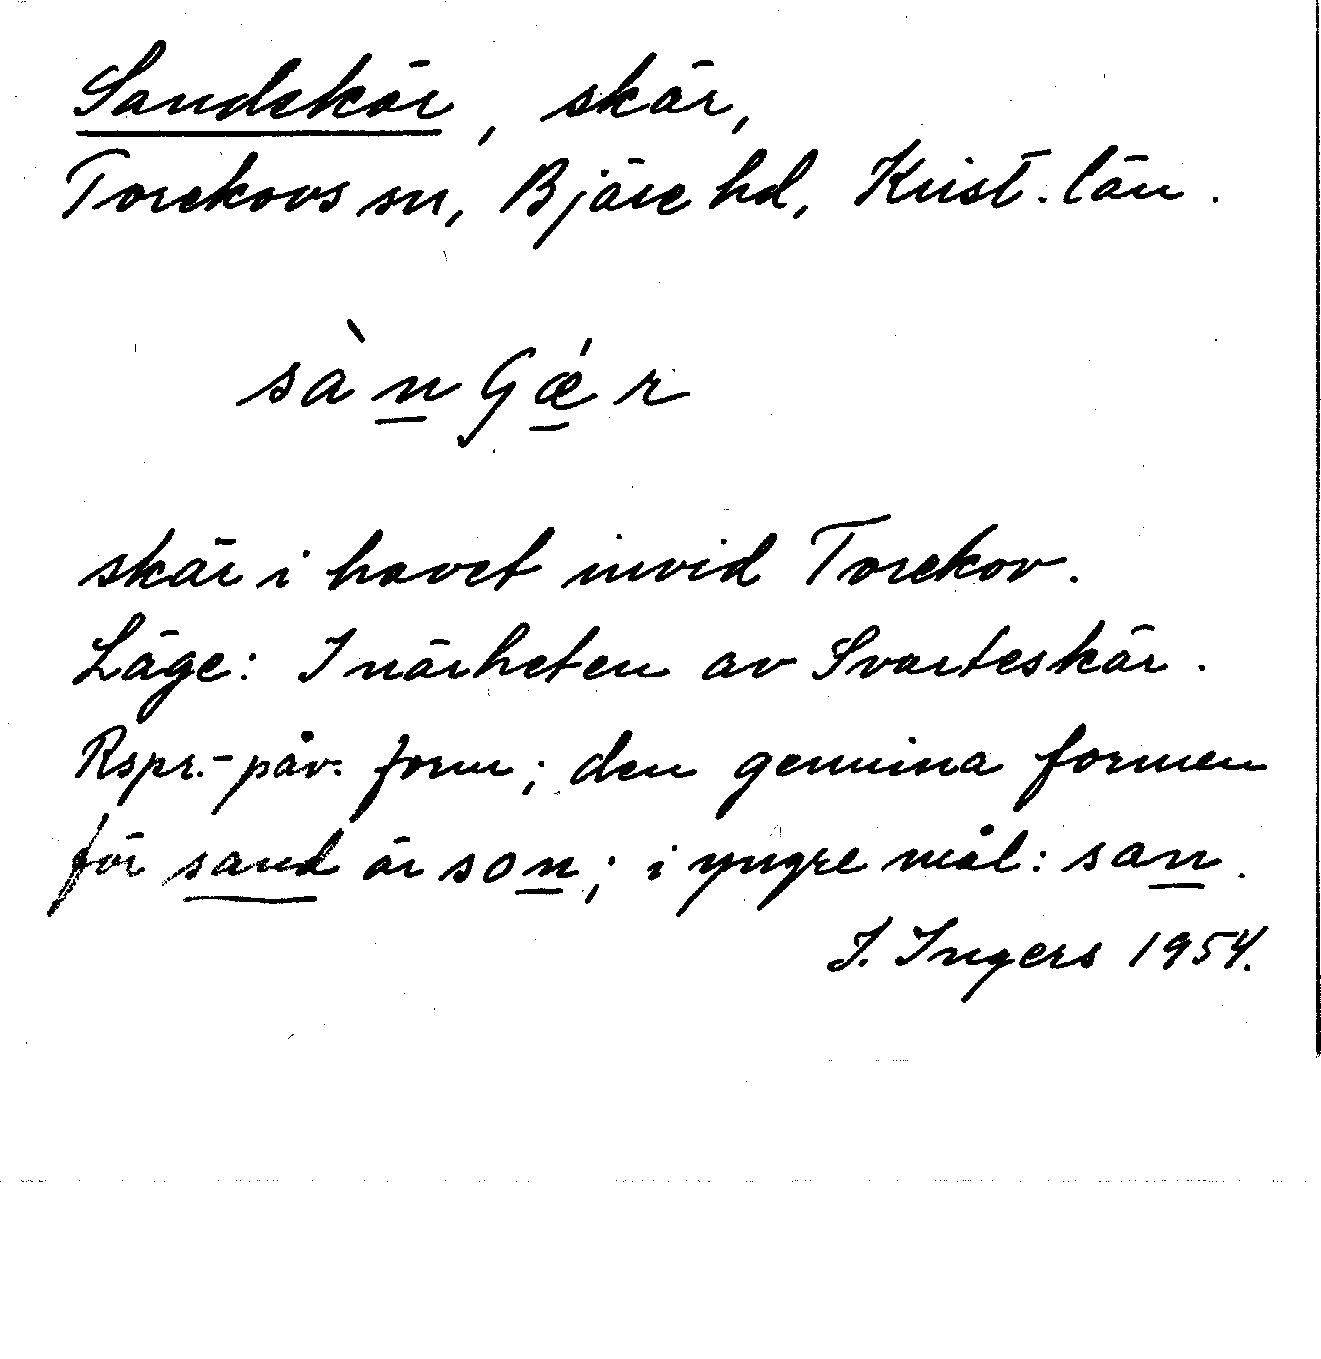 Sandskär, skär,
Torekovs sn, Bjäre hd, Krist. län.
sàn̲Gǽ̲r
skär i havet invid Torekov.
Läge: I närheten av Svarteskär.
Rspr.-påv. form; den genuina formen
för sand är son̲; i yngre mål: san̲.
I. Ingers 1954.